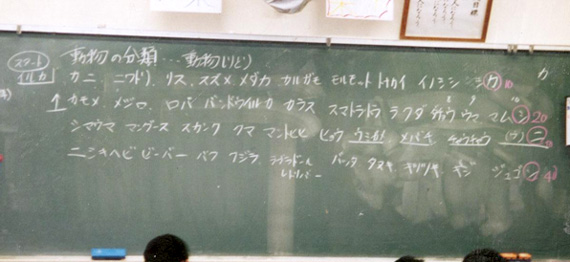 動物の分類…動物しりとり
スタート
イルカ カニ ニワトリ リス スズメ メダカ カルガモ モルモット トナカイ イノシシ シカ 10 カ
カモメ メジロ ロバ バンドウイルカ カラス スマトラトラ ラクダ ダチョウ ウマ マムシ 20
シマウマ マングース スカンク クマ マントヒヒ ヒョウ ウミガメ メバチ
ニシキヘビ ビーバー バク クジラ ラブラドール レトリバー パンダ タヌキ キツツキ キジ ジュゴン 41